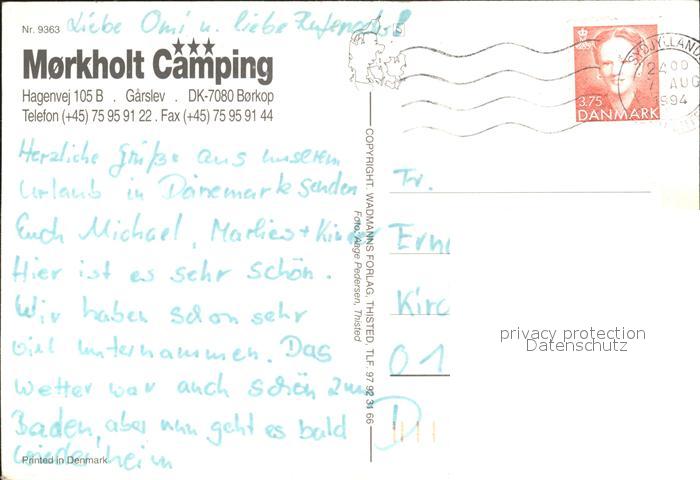 Nr. 9363
Liebe Omi u. liebe
Mørkholt Camping
Hagenvej 105 B . Gårslev . DK-7080 Børkop
Telefon (+45) 75 95 91 22 . Fax (+45) 75 95 91 44
Herzliche Grüße aus unserem
Urlaub in Dänemark senden
Euch Michael, Marlies + Kinder
Hier ist es sehr schön.
Wir haben schon sehr
viel unternommen. Das
Wetter war auch schön zum
Baden, aber nun geht es bald
wieder heim
Printed in Denmark
COPYRIGHT. WADMANNS FORLAG, THISTED, TLF. 97 92 31 66
Foto: Aage Pedersen, Thisted
SYDJYLLANDS
24 00
AUG
1994
3.75
DANMARK
Fr.
Erna
Kirc
01
D
privacy protection
Datenschutz